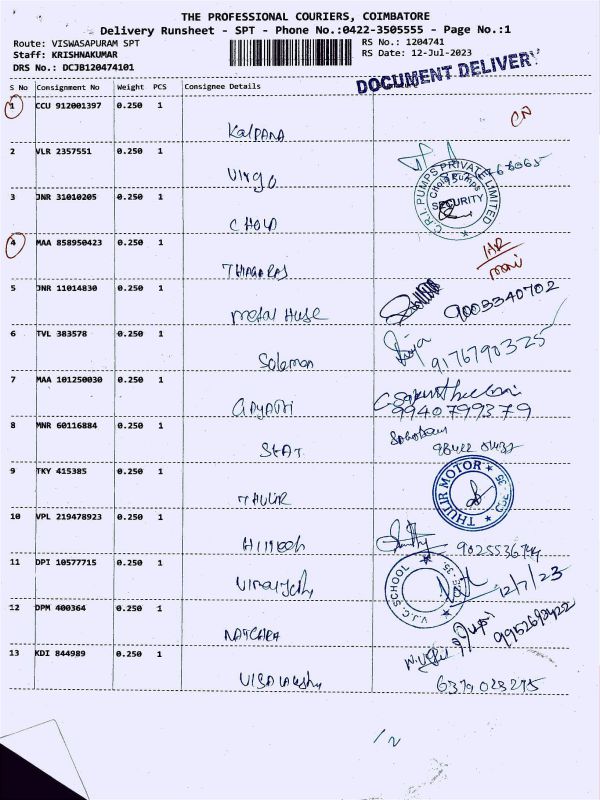 THE PROFESSIONAL COURIERS, COIMBATORE
Delivery Runsheet - SPT - Phone No.:0422-3505555 - Page No.:1
Route: VISWASAPURAM SPT
RS No.: 1204741
Staff: KRISHNAKUMAR
RS Date: 12-Jul-2023
DRS No.: DCJB120474101
DOCUMENT DELIVERY
S No Consignment No Weight PCS Consignee Details
1 CCU 912001397 0.250 1
CN
Kalpana
2 VLR 2357551 0.250 1
Virgo
C.R.I. PUMPS PRIVATE LIMITED
Chola Pumps
SECURITY
3 JNR 31010205 0.250 1
CHOLA
4 MAA 858950423 0.250 1
THIAGARAJ
5 JNR 11014830 0.250 1
metal Huse
9003340702
6 TVL 383578 0.250 1
Solomon
9176790325
7 MAA 101250030 0.250 1
GAYATRI
9940799379
8 MNR 60116884 0.250 1
SEAT
9 TKY 415385 0.250 1
THULIR
THULIR MOTOR
CBE - 35
10 VPL 219478923 0.250 1
Hitech
11 DPI 10577715 0.250 1
V.J.C. SCHOOL
12/7/23
12 DPM 400364 0.250 1
13 KDI 844989 0.250 1
6379028275